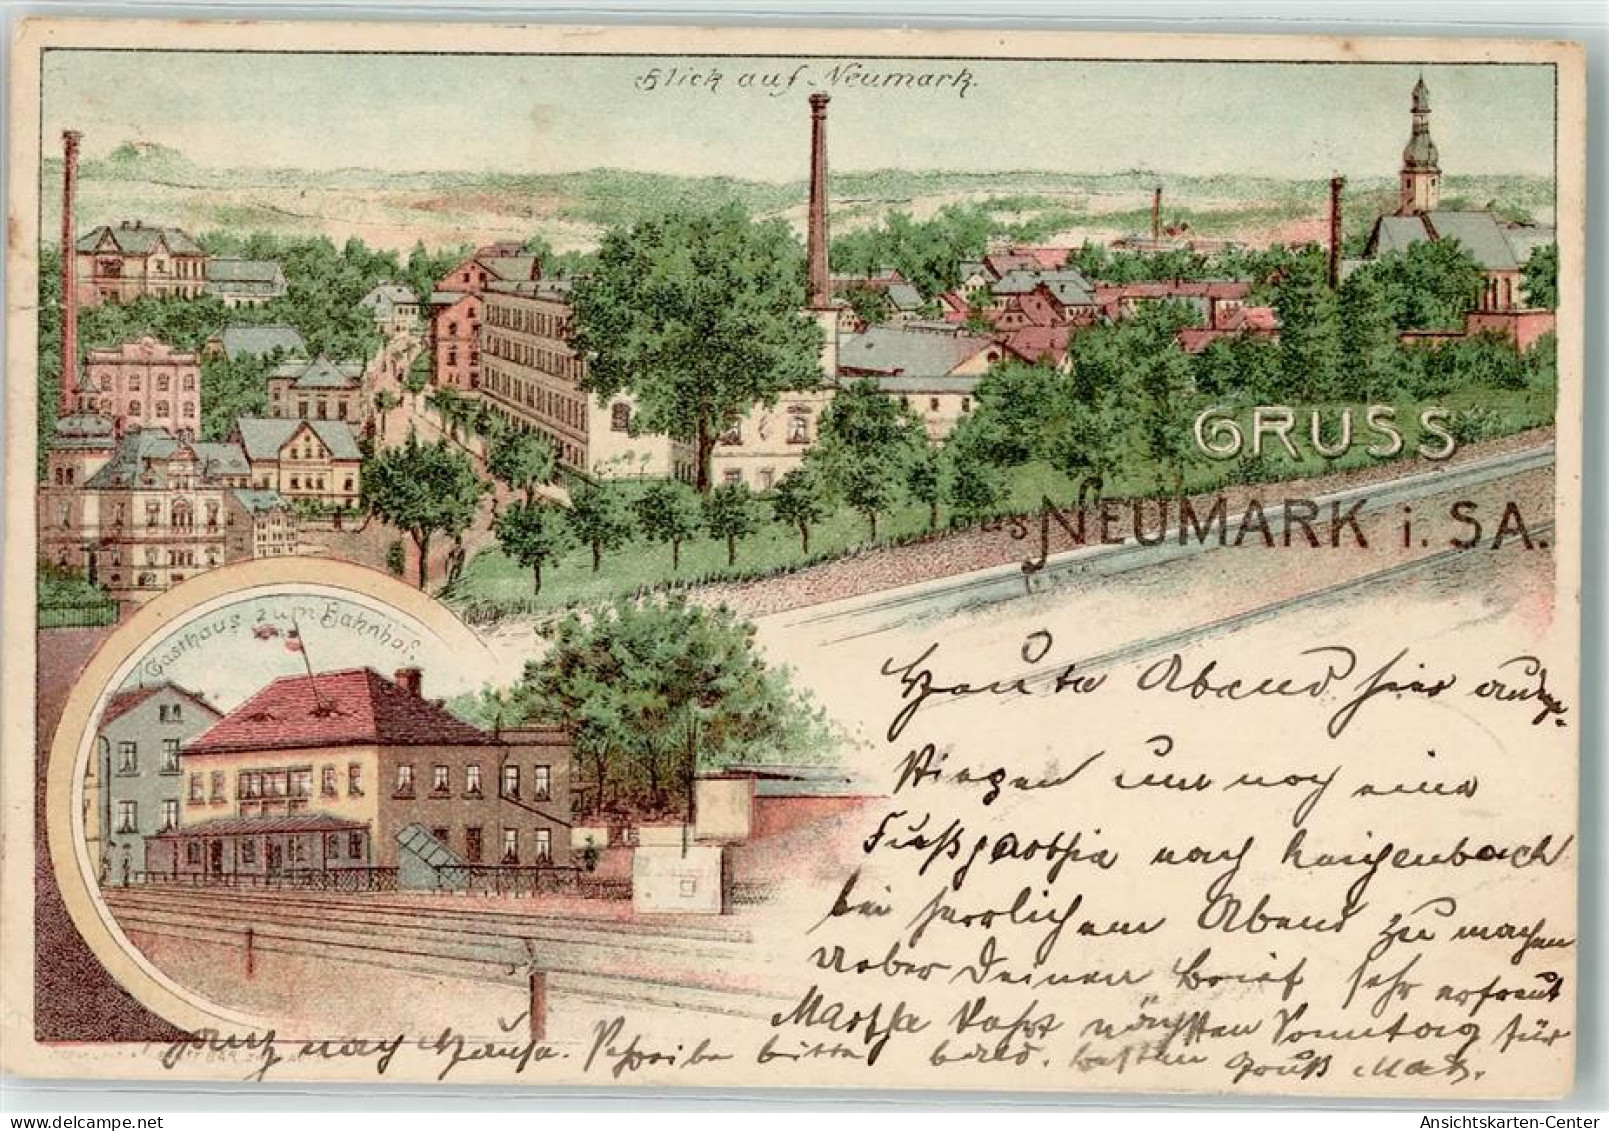 Blick auf Neumark.
GRUSS
aus NEUMARK i. SA.
Gasthaus zum Bahnhof.
Heute Abend hier
und noch eine
Fußparthie nach Reichenbach
bei herrlichem Abend zu machen
Ueber Deinen Brief sehr erfreut
Martha fährt nächsten Sonntag für
ganz nach Hause. Schreibe bitte bald. Besten Gruß
Ansichtskarten-Center